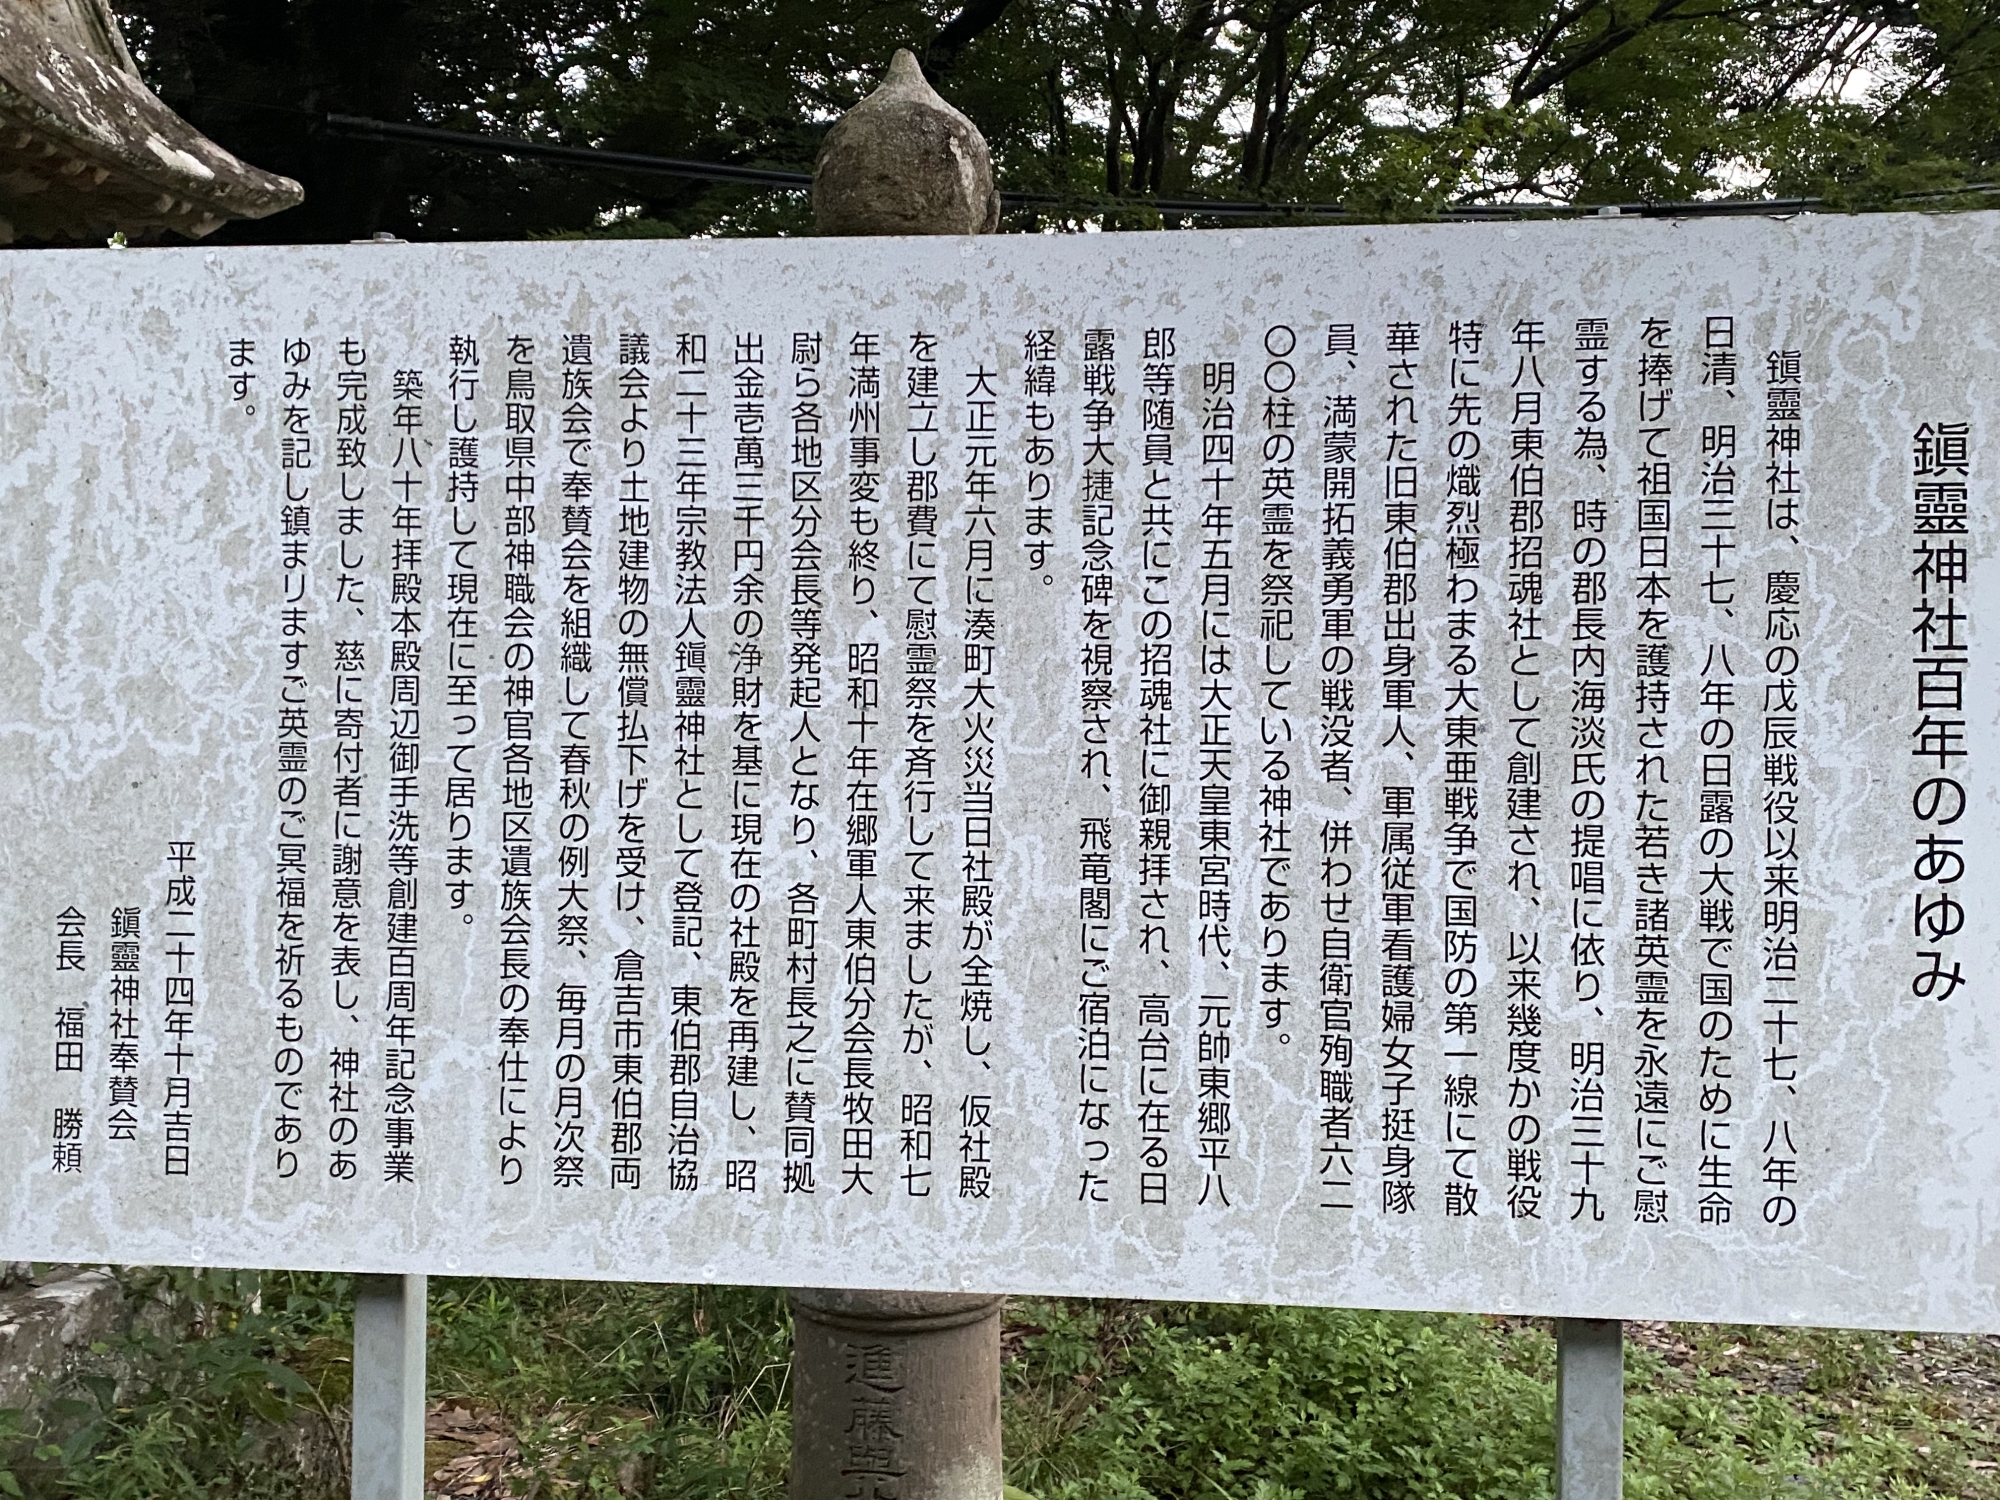 鎭靈神社百年のあゆみ
鎭靈神社は、慶応の戊辰戦役以来明治二十七、八年の
日清、明治三十七、八年の日露の大戦で国のために生命
を捧げて祖国日本を護持された若き諸英霊を永遠にご慰
霊する為、時の郡長内海淡氏の提唱に依り、明治三十九
年八月東伯郡招魂社として創建され、以来幾度かの戦役
特に先の熾烈極わまる大東亜戦争で国防の第一線にて散
華された旧東伯郡出身軍人、軍属従軍看護婦女子挺身隊
員、満蒙開拓義勇軍の戦没者、併わせ自衛官殉職者六二
〇〇柱の英霊を祭祀している神社であります。
明治四十年五月には大正天皇東宮時代、元帥東郷平八
郎等随員と共にこの招魂社に御親拝され、高台に在る日
露戦争大捷記念碑を視察され、飛竜閣にご宿泊になった
経緯もあります。
大正元年六月に湊町大火災当日社殿が全焼し、仮社殿
を建立し郡費にて慰霊祭を斉行して来ましたが、昭和七
年満州事変も終り、昭和十年在郷軍人東伯分会長牧田大
尉ら各地区分会長等発起人となり、各町村長之に賛同拠
出金壱萬三千円余の浄財を基に現在の社殿を再建し、昭
和二十三年宗教法人鎭靈神社として登記、東伯郡自治協
議会より土地建物の無償払下げを受け、倉吉市東伯郡両
遺族会で奉賛会を組織して春秋の例大祭、毎月の月次祭
を鳥取県中部神職会の神官各地区遺族会長の奉仕により
執行し護持して現在に至って居ります。
築年八十年拝殿本殿周辺御手洗等創建百周年記念事業
も完成致しました、慈に寄付者に謝意を表し、神社のあ
ゆみを記し鎮まリますご英霊のご冥福を祈るものであり
ます。
平成二十四年十月吉日
鎭靈神社奉賛会
会長 福田 勝頼
進藤與